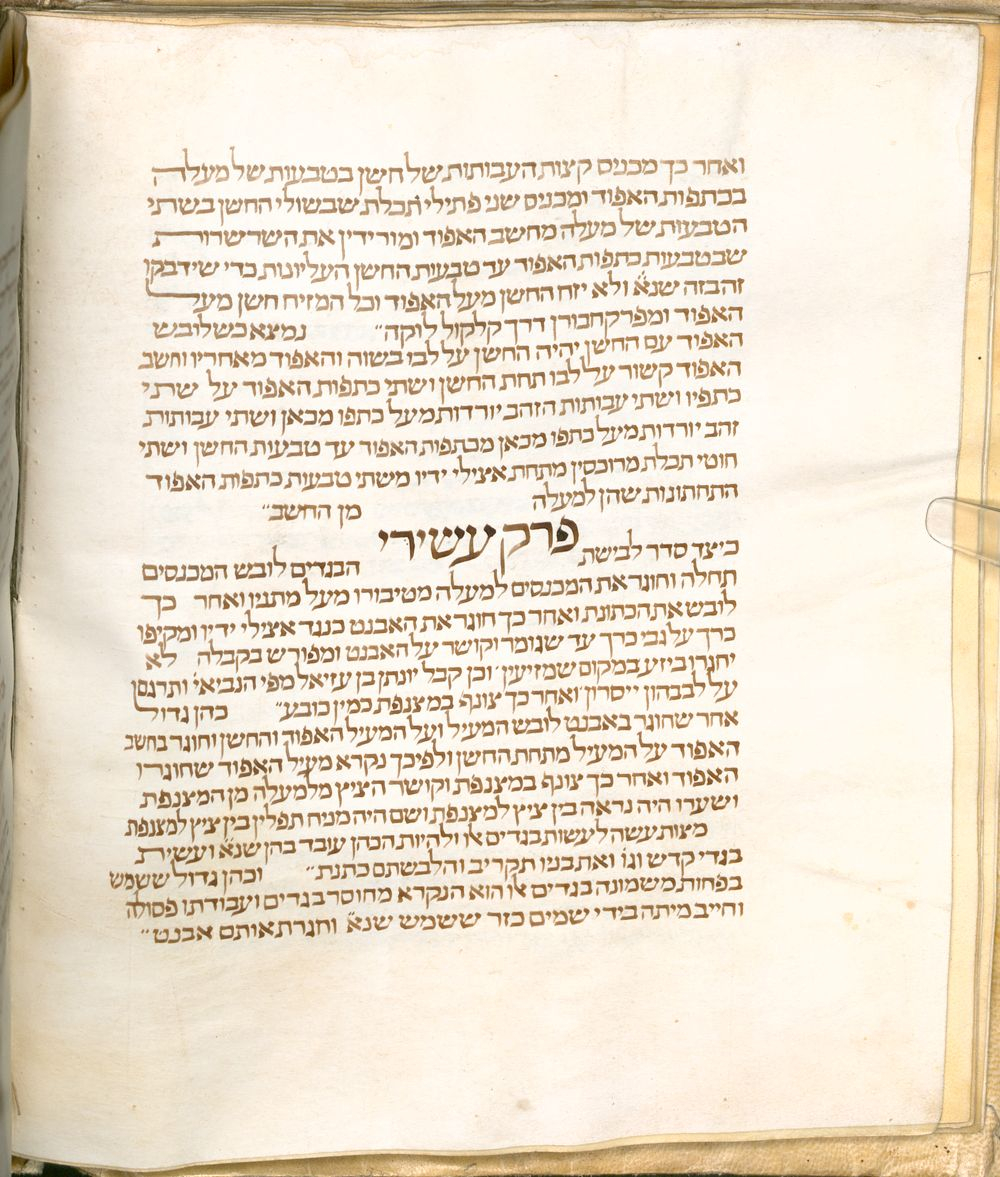 ואחר כך מכניס קצות העבותות של חשן בטבעות של מעלה
בכתפות האפוד ומכניס שני פתילי תכלת שבשולי החשן בשתי
הטבעות של מעלה מחשב האפוד ומורידין את השרשרות
שבטבעות כתפות האפוד עד טבעות החשן העליונות כדי שידבקו
זה בזה שנא׳ ולא יזח החשן מעל האפוד וכל המזיח חשן מעל
האפוד ומפרק חבורן דרך קלקול לוקה״ נמצא כשלובש
האפוד עם החשן יהיה החשן על לבו בשוה והאפוד מאחריו וחשב
האפוד קשור על לבו תחת החשן ושתי כתפות האפוד על שתי
כתפיו ושתי עבותות הזהב יורדות מעל כתפו מכאן ושתי עבותות
זהב יורדות מעל כתפו מכאן מכתפות האפוד עד טבעות החשן ושתי
חוטי תכלת מרוכסין מתחת אצילי ידיו משתי טבעות כתפות האפוד
התחתונות שהן למעלה מן החשב״
פרק עשירי
כיצד סדר לבישת הבגדים לובש המכנסים
תחלה וחוגר את המכנסים למעלה מטיבורו מעל מתניו ואחר כך
לובש את הכתונת ואחר כך חוגר את האבנט כנגד אצילי ידיו ומקיפו
כרך על גבי כרך עד שגומר וקושר על האבנט ומפורש בקבלה לא
יחגרו ביזע במקום שמזיעין וכן קבל יונתן בן עזיאל מפי הנביאי׳ ותרגם
על לבבהון ייסרון ואחר כך צונף במצנפת כמין כובע״ כהן גדול
אחר שחוגר באבנט לובש המעיל ועל המעיל האפוד והחשן וחוגר בחשב
האפוד על המעיל מתחת החשן ולפיכך נקרא מעיל האפוד שחוגרו
האפוד ואחר כך צונף במצנפת וקושר הציץ מלמעלה מן המצנפת
ושערו היה נראה בין ציץ למצנפת ושם היה מניח תפלין בין ציץ למצנפת
מצות עשה לעשות בגדים אלו ולהיות הכהן עובד בהן שנא׳ ועשית
בגדי קדש וגו׳ ואת בניו תקריב והלבשתם כתנת״ וכהן גדול ששמש
בפחות משמונה בגדים אלו הוא הנקרא מחוסר בגדים ועבודתו פסולה
וחייב מיתה בידי שמים כזר ששמש שנא׳ וחגרת אותם אבנט״